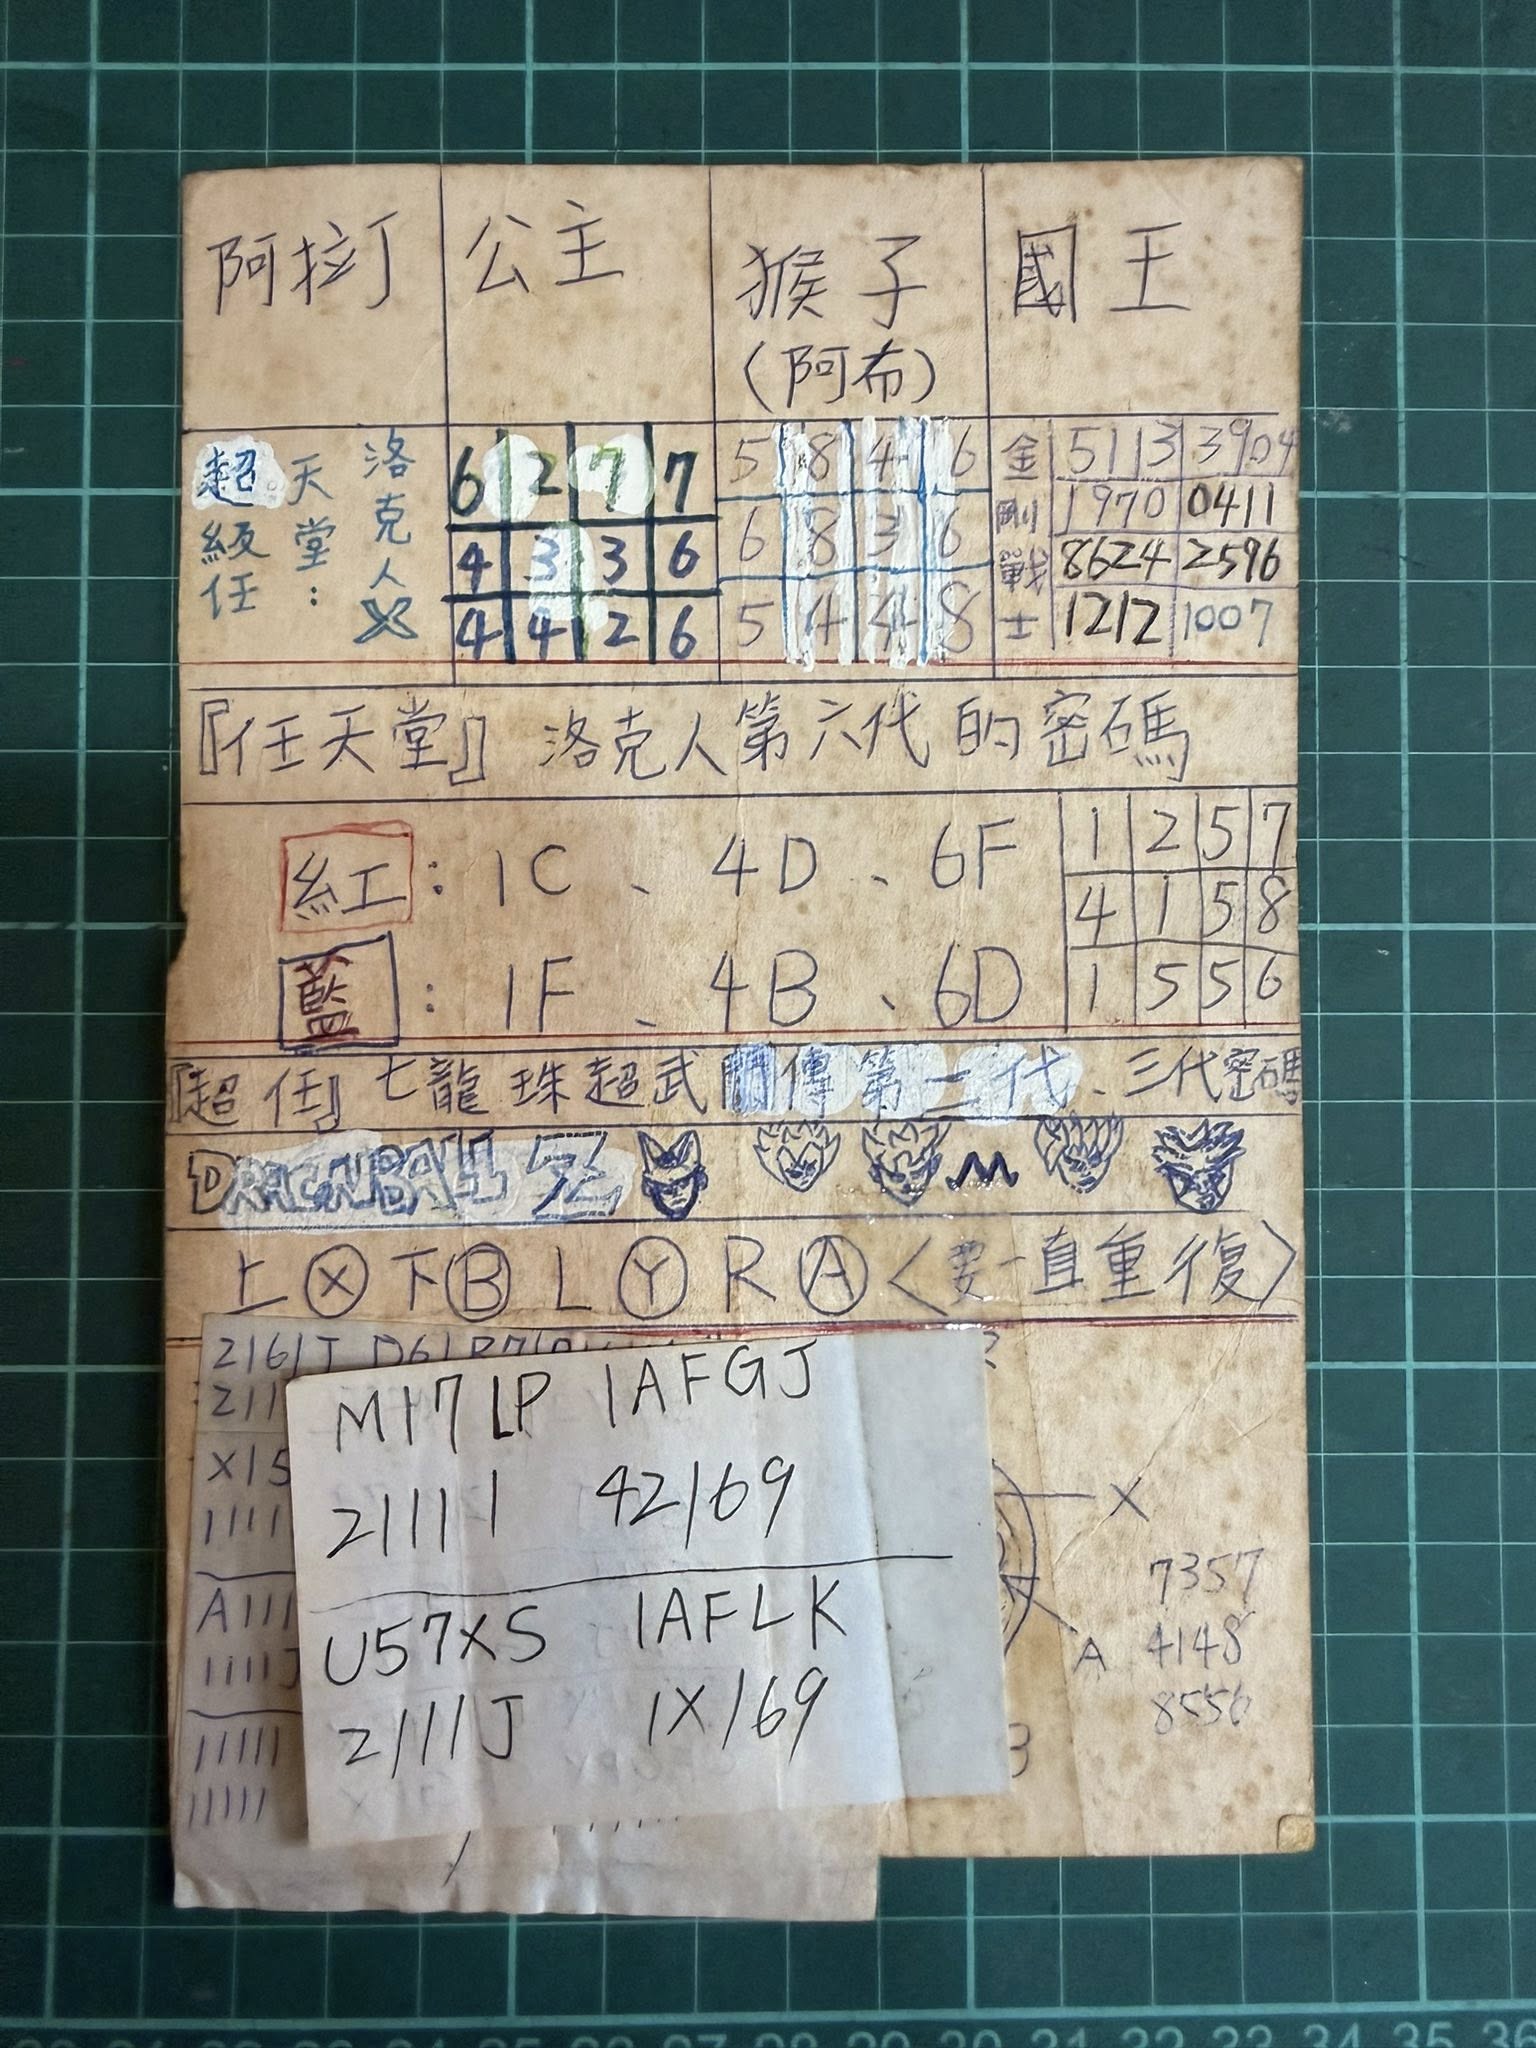 阿拉丁 公主 猴子 國王
(阿布)
超級任天堂：洛克人X
6 2 7 7
4 3 3 6
4 4 2 6
5 8 4 6
6 8 3 6
5 4 4 8
金剛戰士
5113 3904
1970 0411
8624 2596
1212 1007
『任天堂』洛克人第六代的密碼
紅：1C、4D、6F
藍：1F、4B、6D
1 2 5 7
4 1 5 8
1 5 5 6
『超任』七龍珠超武鬥傳第二代、三代密碼
DRAGONBALL Z
上Ⓧ下ⒷLⓎRⒶ〈要一直重復〉
2161J D61R7
211
X15
1111
A111
1111J
11111
11111
M171P 1AFGJ
21111 42169
U57XS 1AFLK
2111J 1X169
X
A
7357
4148
8556
3